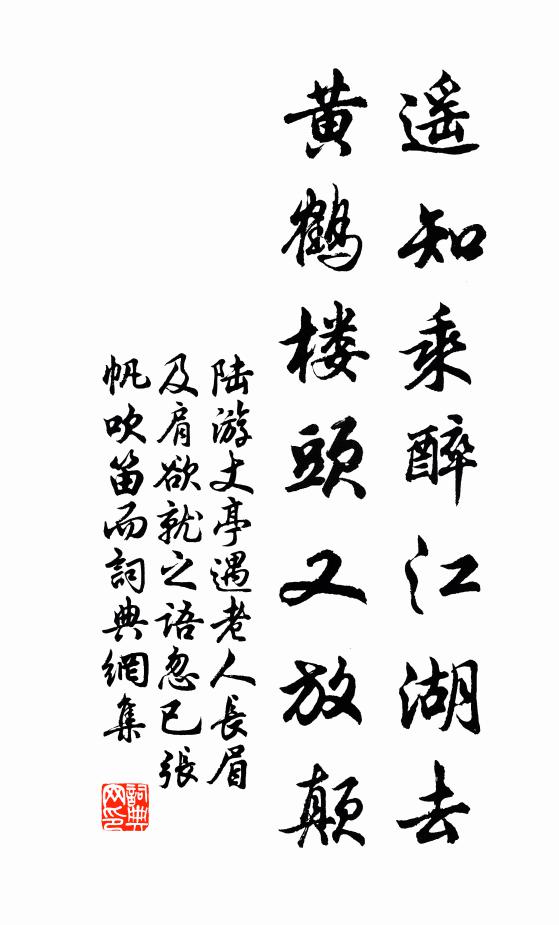 遥知乘醉江湖去
黄鶴楼頭又放颠
陆游丈亭遇老人長眉
及肩欲就之语忽已張
帆吹笛而詞典網集
詞典
网印